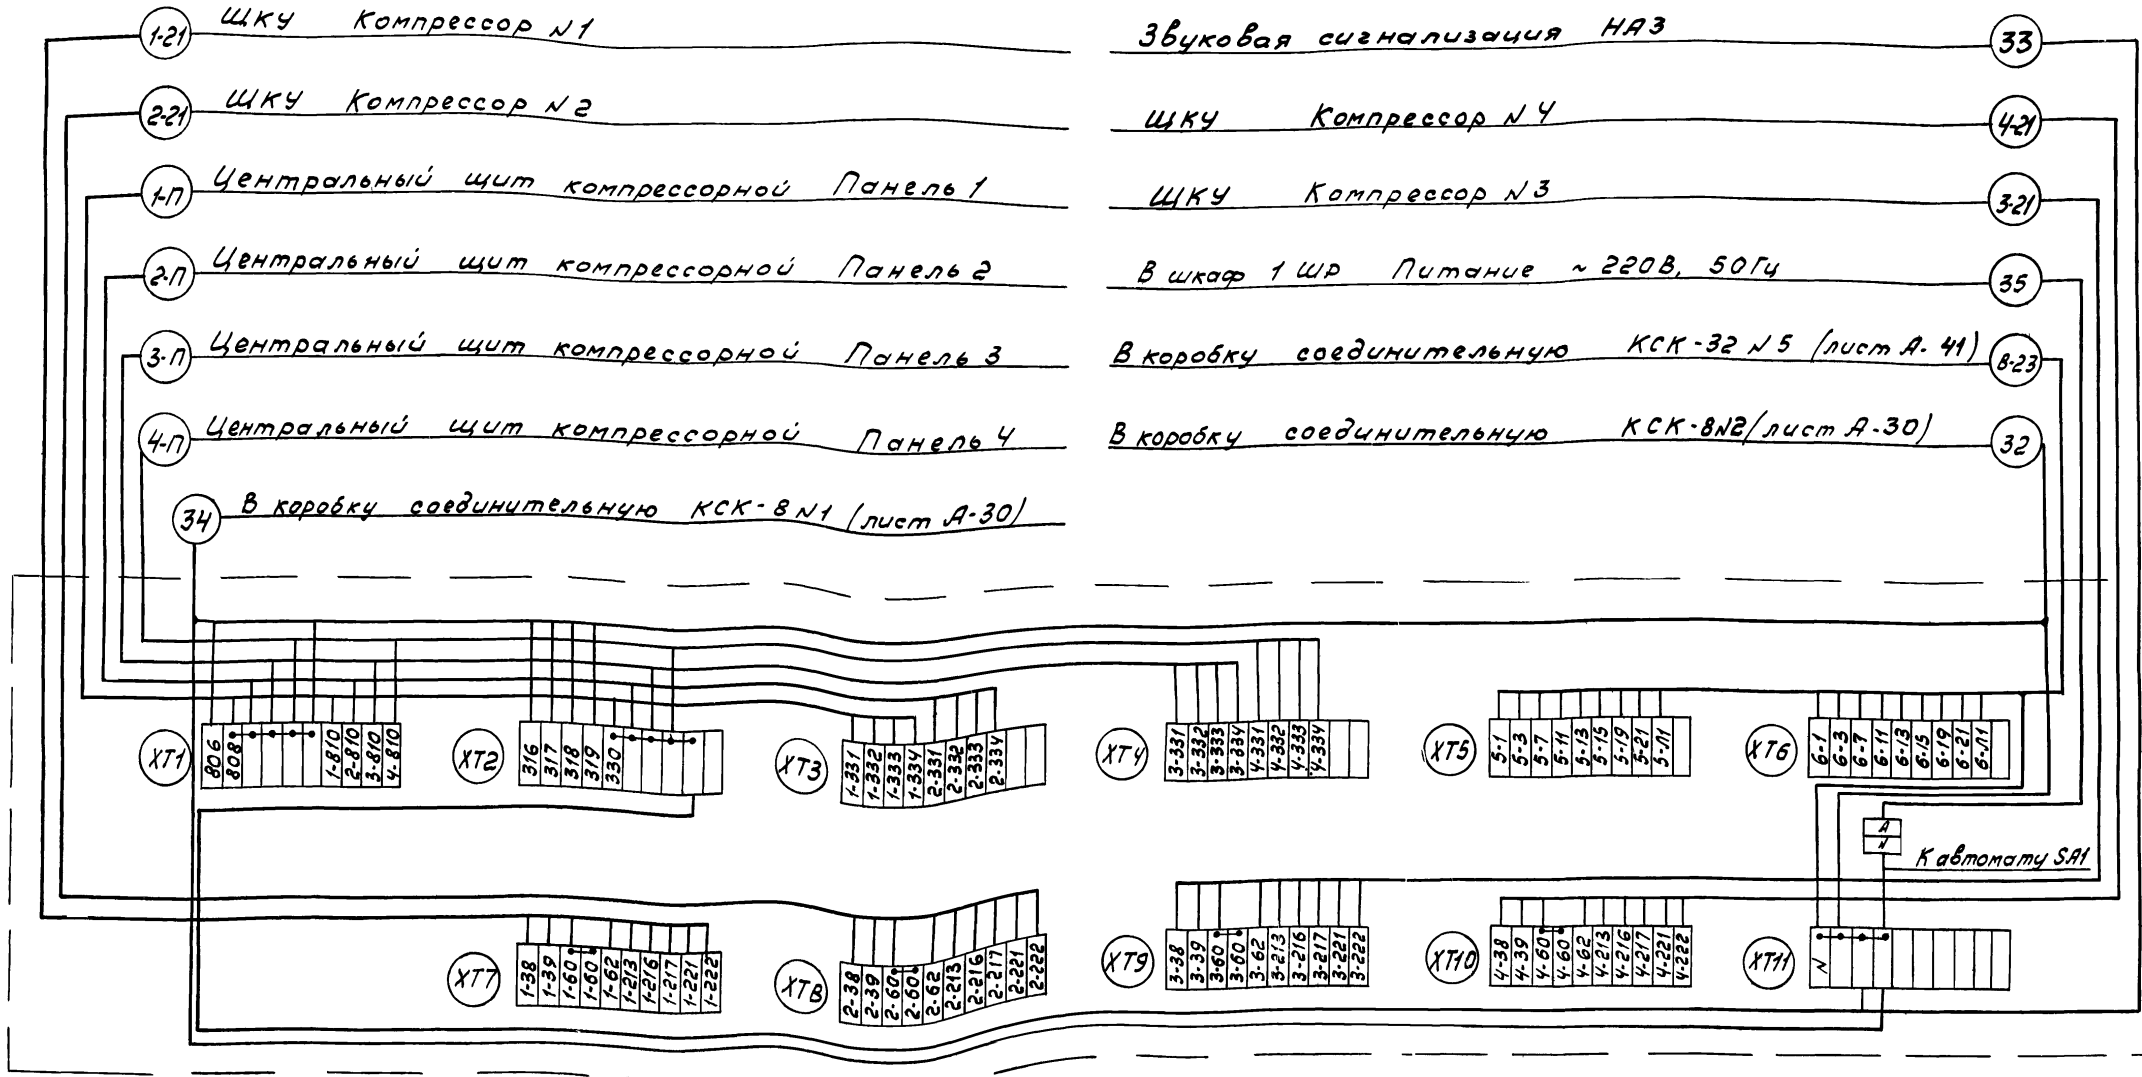 1-21 ЩКУ Компрессор N1
2-21 ЩКУ Компрессор N2
1-П Центральный щит компрессорной Панель 1
2-П Центральный щит компрессорной Панель 2
3-П Центральный щит компрессорной Панель 3
4-П Центральный щит компрессорной Панель 4
34 В коробку соединительную КСК-8 N1 (лист А-30)
Звуковая сигнализация НАЗ 33
ЩКУ Компрессор N4 4-21
ЩКУ Компрессор N3 3-21
В шкаф 1 ШР Питание ~ 220В, 50Гц 35
В коробку соединительную КСК-32 N5 (лист А-41) В-23
В коробку соединительную КСК-8N2 (лист А-30) 32
ХТ1 806 808 1-810 2-810 3-810 4-810
ХТ2 316 317 318 319 330
ХТ3 1-331 1-332 1-333 1-334 2-331 2-332 2-333 2-334
ХТ4 3-331 3-332 3-333 3-334 4-331 4-332 4-333 4-334
ХТ5 5-1 5-3 5-7 5-11 5-13 5-15 5-19 5-21 5-Л1
ХТ6 6-1 6-3 6-7 6-11 6-13 6-15 6-19 6-21 6-Л1
А
N
К автомату SA1
ХТ7 1-38 1-39 1-60 1-60 1-62 1-213 1-216 1-217 1-221 1-222
ХТ8 2-38 2-39 2-60 2-60 2-62 2-213 2-216 2-217 2-221 2-222
ХТ9 3-38 3-39 3-60 3-60 3-62 3-213 3-216 3-217 3-221 3-222
ХТ10 4-38 4-39 4-60 4-60 4-62 4-213 4-216 4-217 4-221 4-222
ХТ11 N